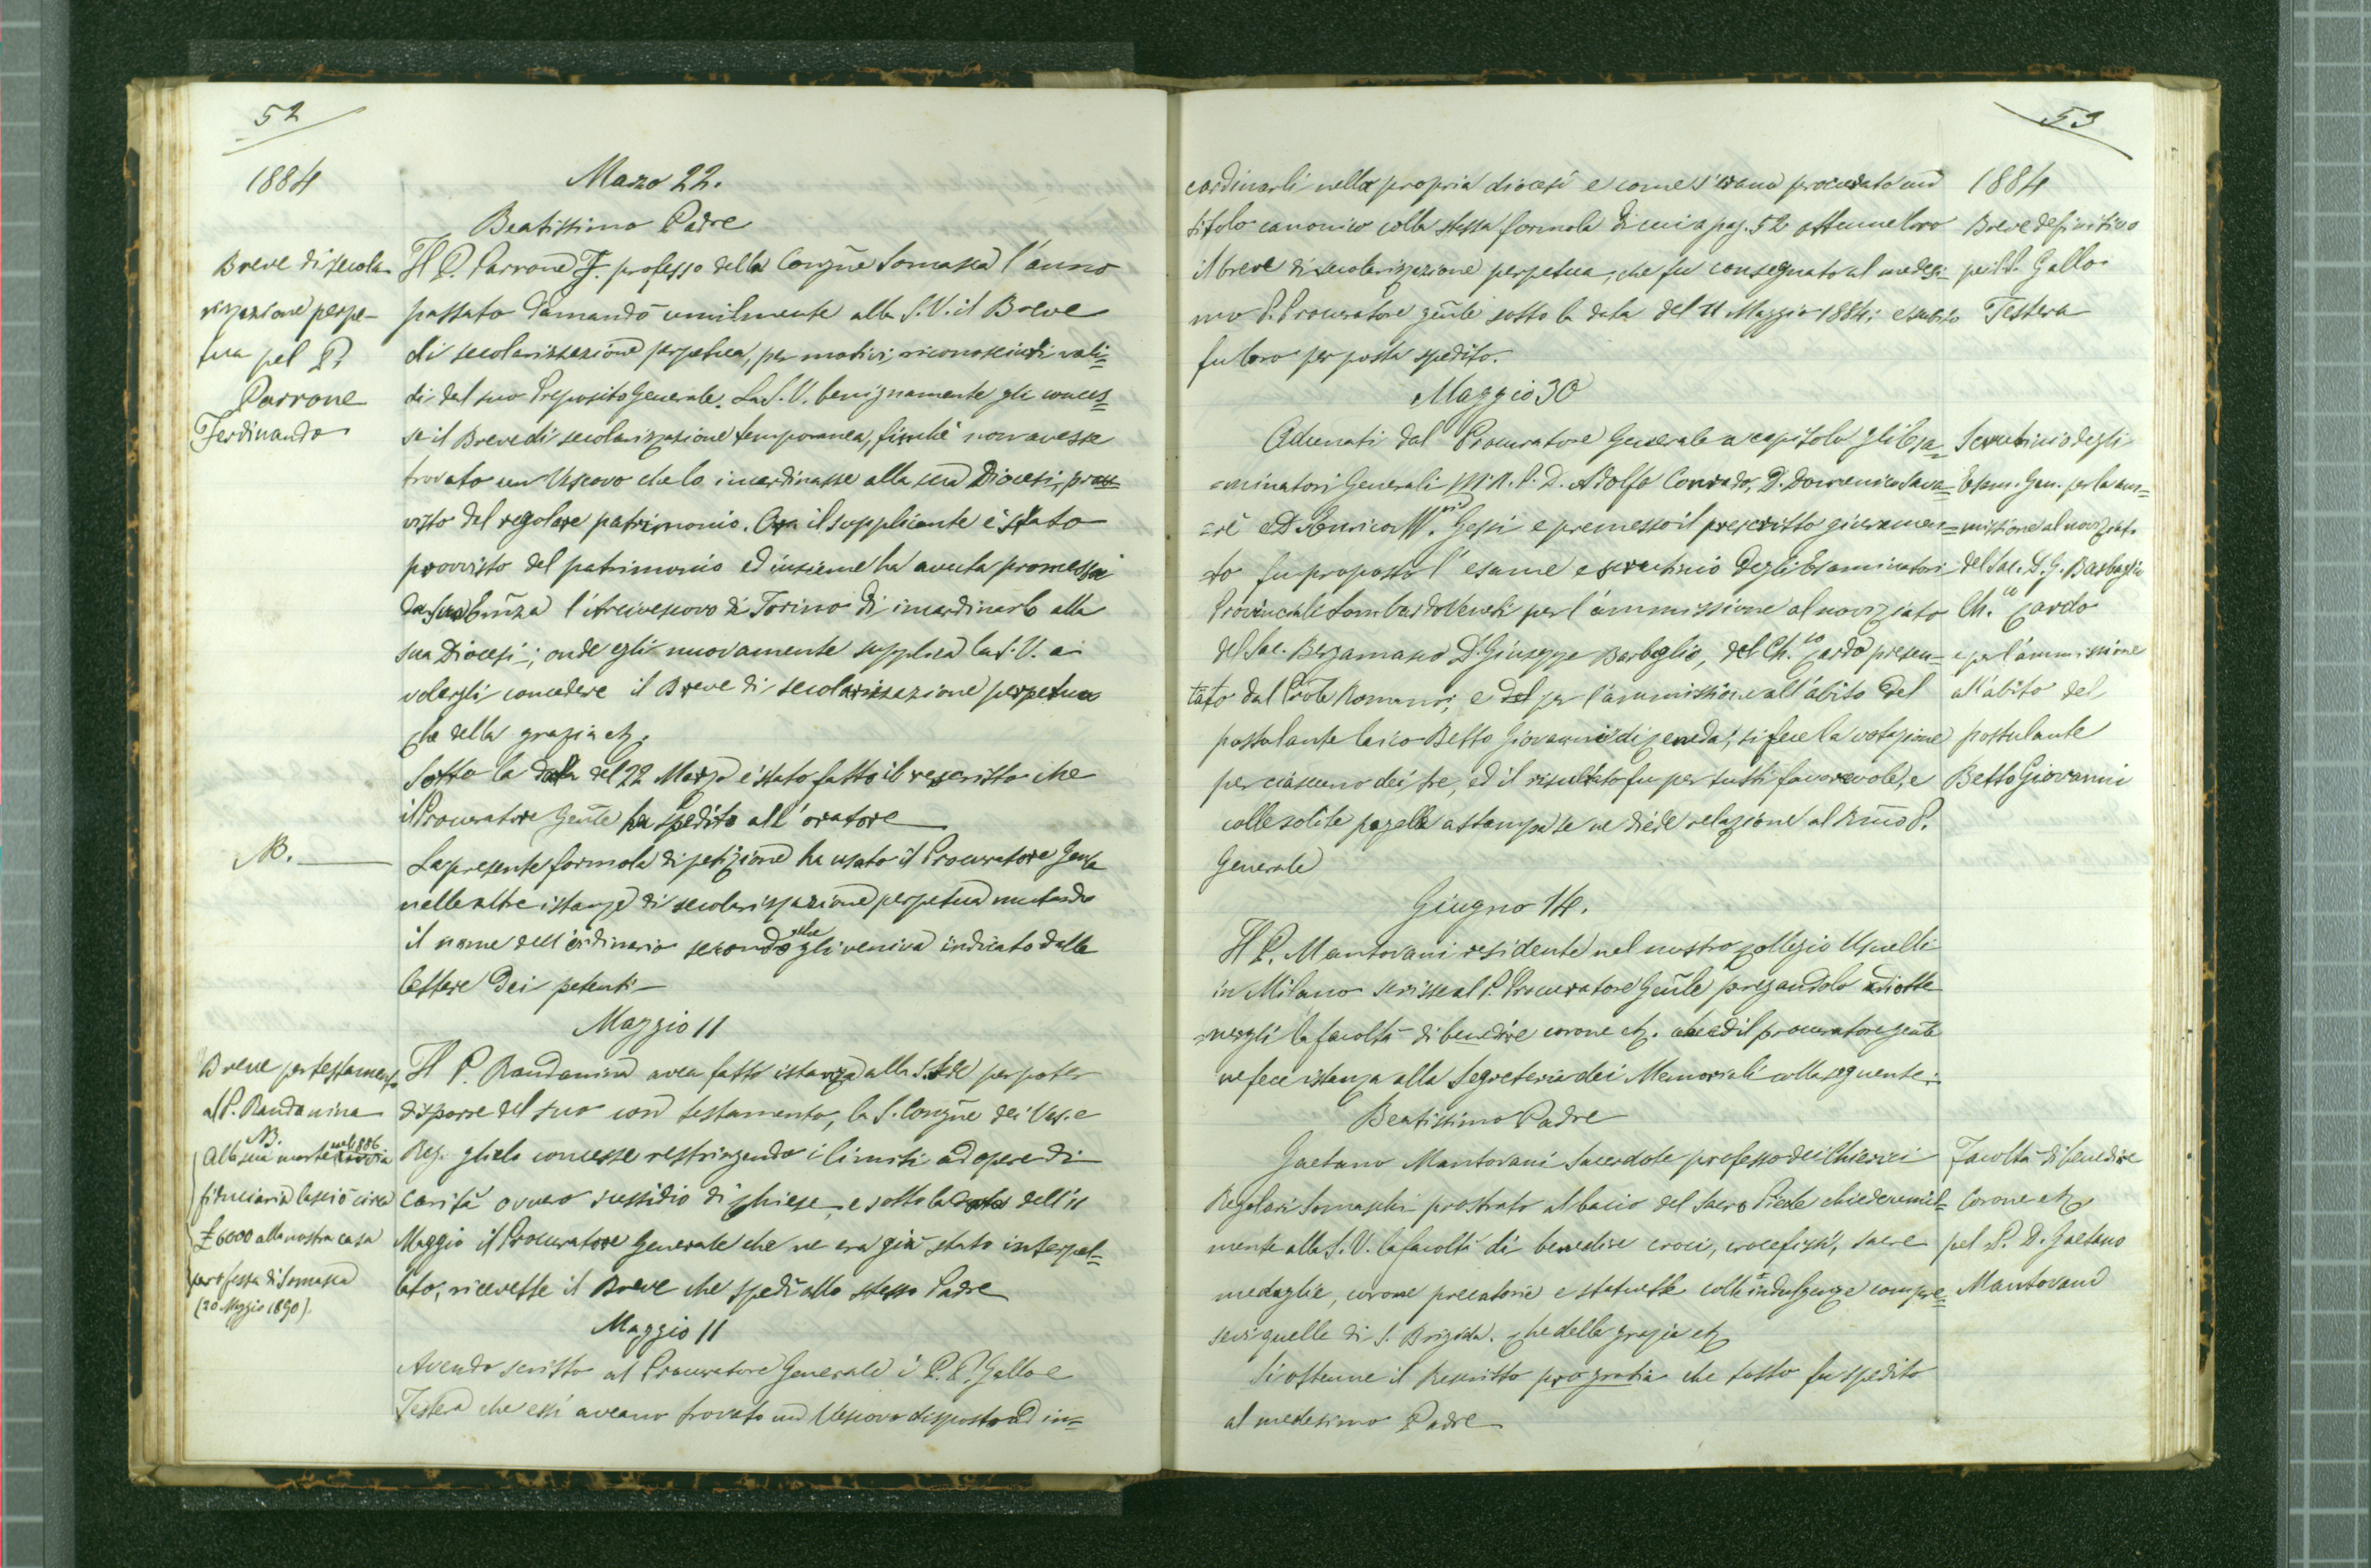 52
1884
Marzo 22.
Beatissimo Padre
Breve di secola-
rizzazione perpe-
tua pel P.
Parrone
Ferdinando
Il P. Parrone F. professo della Congne Somasca l'anno
passato domandò umilmente alla S.V. il Breve
di secolarizzazione perpetua, per motivi riconosciuti vali=
di dal suo Preposito Generale. La S.V. benignamente gli conces=
se il Breve di secolarizzazione temporanea, finchè non avesse
trovato un Vescovo che lo incardinasse alla sua Diocesi, prov=
visto del regolare patrimonio. Ora il supplicante è stato
provvisto del patrimonio ed insieme ha avuta promessa
da Sua Emza l'Arcivescovo di Torino di incardinarlo alla
sua Diocesi; onde egli nuovamente supplica la S.V. a
volergli concedere il Breve di secolarizzazione perpetua
Che della grazia etc.
Sotto la data del 22 Marzo è stato fatto il rescritto che
il Procuratore Genle ha spedito all'oratore
NB.
La presente formola di petizione ha usato il Procuratore Genle
nelle altre istanze di secolarizzazione perpetua mutando
il nome dell'ordinario secondo che gli veniva indicato dalle
lettere dei petenti
Maggio 11
Breve per testamento
al P. Randanina
NB.
Alla sua morte nel 1886
fiduciaria lasciò circa
£ 6000 alla nostra casa
professa di Somasca
(20 Maggio 1890).
Il P. Randanina avea fatto istanza alla S. Sede per poter
disporre del suo con testamento, la S. Congne dei Vesc. e
Reg. glielo concesse restringendo i limiti ad opere di
carità ovvero sussidio di chiese, e sotto la data dell'11
Maggio il Procuratore Generale che ne era già stato interpel=
lato, ricevette il Breve che spedì allo stesso Padre
Maggio 11
Avendo scritto al Procuratore Generale i P.P. Gallo e
Testera che essi aveano trovato un Vescovo disposto ad in=
53
1884
Breve definitivo
pei P. Gallo
Testera
cardinarli nella propria diocesi e come s'erano procurato un
titolo canonico colla stessa formola di cui a pag. 52 ottenne loro
il breve di secolarizzazione perpetua, che fu consegnato al medesi=
mo P. Procuratore genle sotto la data del 11 Maggio 1884; e subito
fu loro per posta spedito.
Maggio 30
Scrutinio degli
Esam. Gen. per la am=
missione al noviziato
del Sac. D. G. Barbaglio
Ch.co Zardo
e per l'ammissione
all'abito del
postulante
Betto Giovanni
Adunati dal Procuratore Generale a capitolo gli Esa=
=minatori Generali M.R.P. D. Adolfo Conrado, D. Domenico Sava=
=rè e D. Enrico M. Gessi e premesso il prescritto giuramen=
=to fu proposto l'esame e scrutinio degli Esaminatori
Provinciale Lombardo Veneti per l'ammissione al noviziato
del Sac. Bergamasco D. Giuseppe Barbaglio, del Ch.co Zardo presen=
tato dal Prov.le Romano; e per l'ammissione all'abito del
postulante laico Betto Giovanni di Ceneda, si fece la votazione
per ciascuno dei tre, ed il risultato fu per tutti favorevole, e
colle solite pagelle a stampa se ne diede relazione al Rmo P.
Generale
Giugno 14.
Il P. Mantovani residente nel nostro Collegio Usuelli
in Milano scrisse al P. Procuratore Genle pregandolo di otte
=nergli la facoltà di benedire corone etc. ed il procuratore genle
ne fece istanza alla Segreteria dei Memoriali colla seguente:
Beatissimo Padre
Facoltà di benedire
Corone etc
pel P. D. Gaetano
Mantovani
Gaetano Mantovani Sacerdote professo dei Chierici
Regolari Somaschi prostrato al bacio del Sacro Piede chiede umil=
mente alla S.V. la facoltà di benedire croci, crocefissi, sacre
medaglie, corone precatorie e statuette colle indulgenze compre=
sevi quelle di S. Brigida. Che della grazia etc
Si ottenne il Rescritto pro gratia che tosto fu spedito
al medesimo Padre